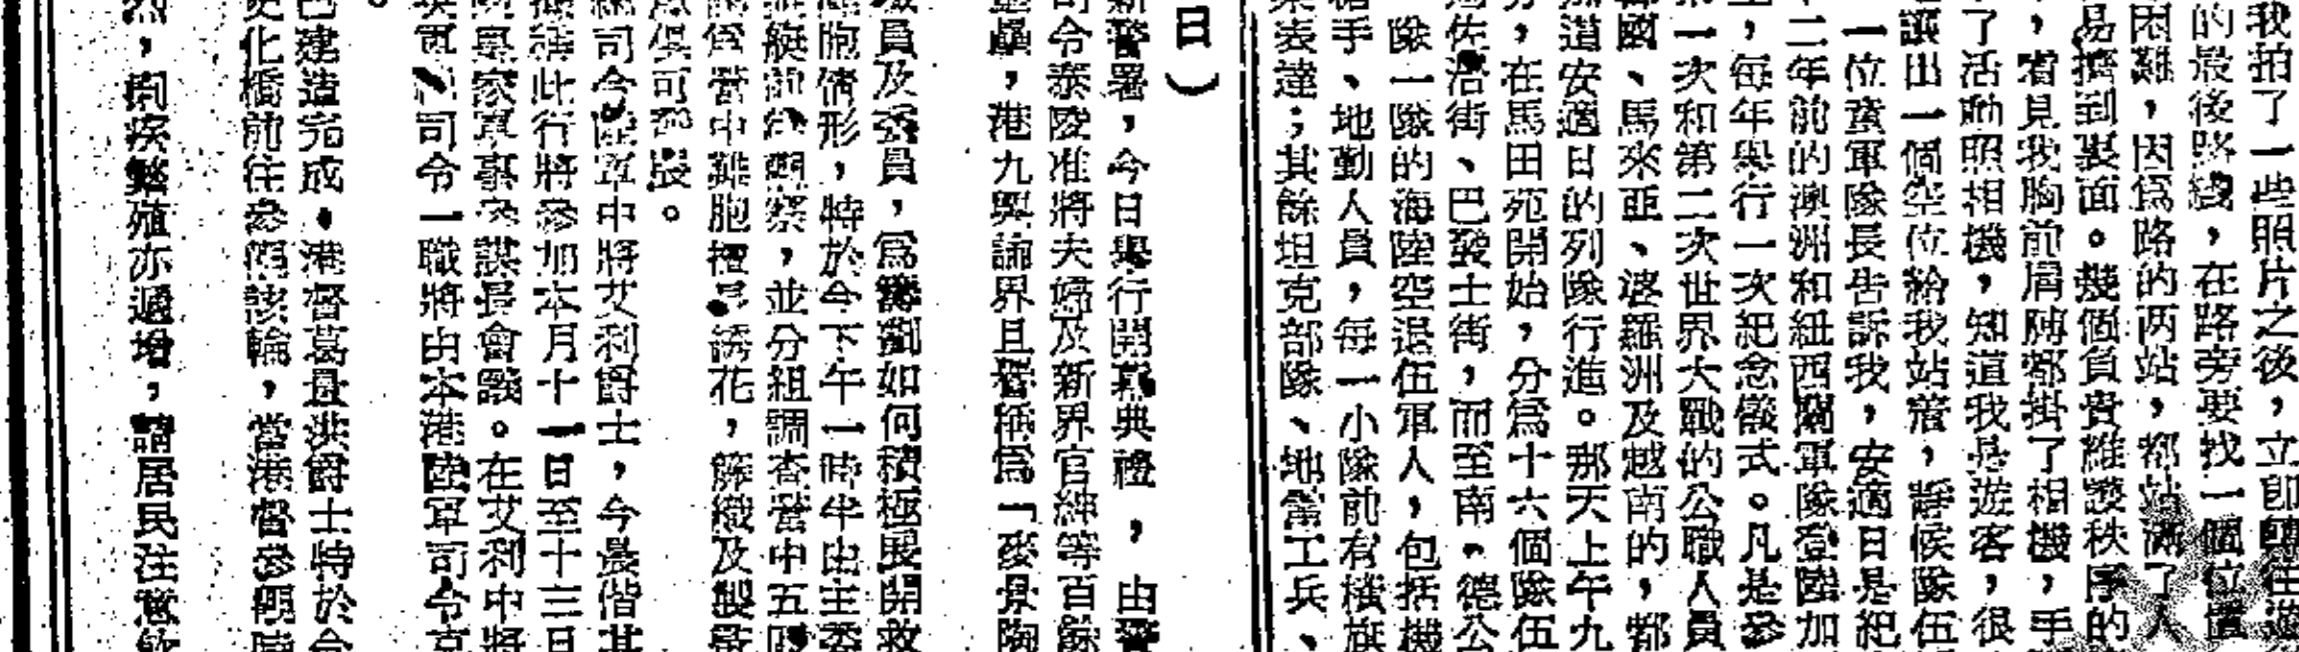 我拍了一些照片之後，立即轉往遊
的最後路綫，在路旁要找一個位置
困難，因爲路的两站，都站滿了人
易擠到裏面。幾個負責維護秩序的
，看見我胸前肩膊都掛了相機，手
了活動照相機，知道我是遊客，很
讓出一個空位給我站着，靜候隊伍
一位童軍隊長告訴我，安適日是紀
十二年前的澳洲和紐西蘭軍隊登陸加
，每年舉行一次紀念儀式。凡是參
第一次和第二次世界大戰的公職人員
國、馬來亞、婆羅洲及越南的，都
道安適日的列隊行進。那天上午九
，在馬田苑開始，分爲十六個隊伍
佐治街、巴發士街，而至南。德公
隊一隊的海陸空退伍軍人，包括機
槍手、地勤人員，每一小隊前有橫旗
表達；其餘坦克部隊、地盤工兵、
日）
新警署，今日舉行開幕典禮，由警
司令泰陵准將夫婦及新界官紳等百餘
，港九輿論界且譽稱爲「麥景陶
員及委員，爲籌劃如何積極展開救
胞情形，特於今下午一時半由主委
艇前往觀察，並分組調查營中五
營中難胞擅長誘花，籐織及製
俱可
總司令陸軍中將艾利爵士，今晨偕其
此行將參加本月十一日至十三日
國專家軍事參謀長會議。在艾利中將
英軍總司令一職將由本港陸軍司令克
。
已建造完成。港督葛量洪爵士特於今
化橋前往參觀該輪，當港督參觀時
烈，痢疾繁殖亦遞增，請居民注意飲